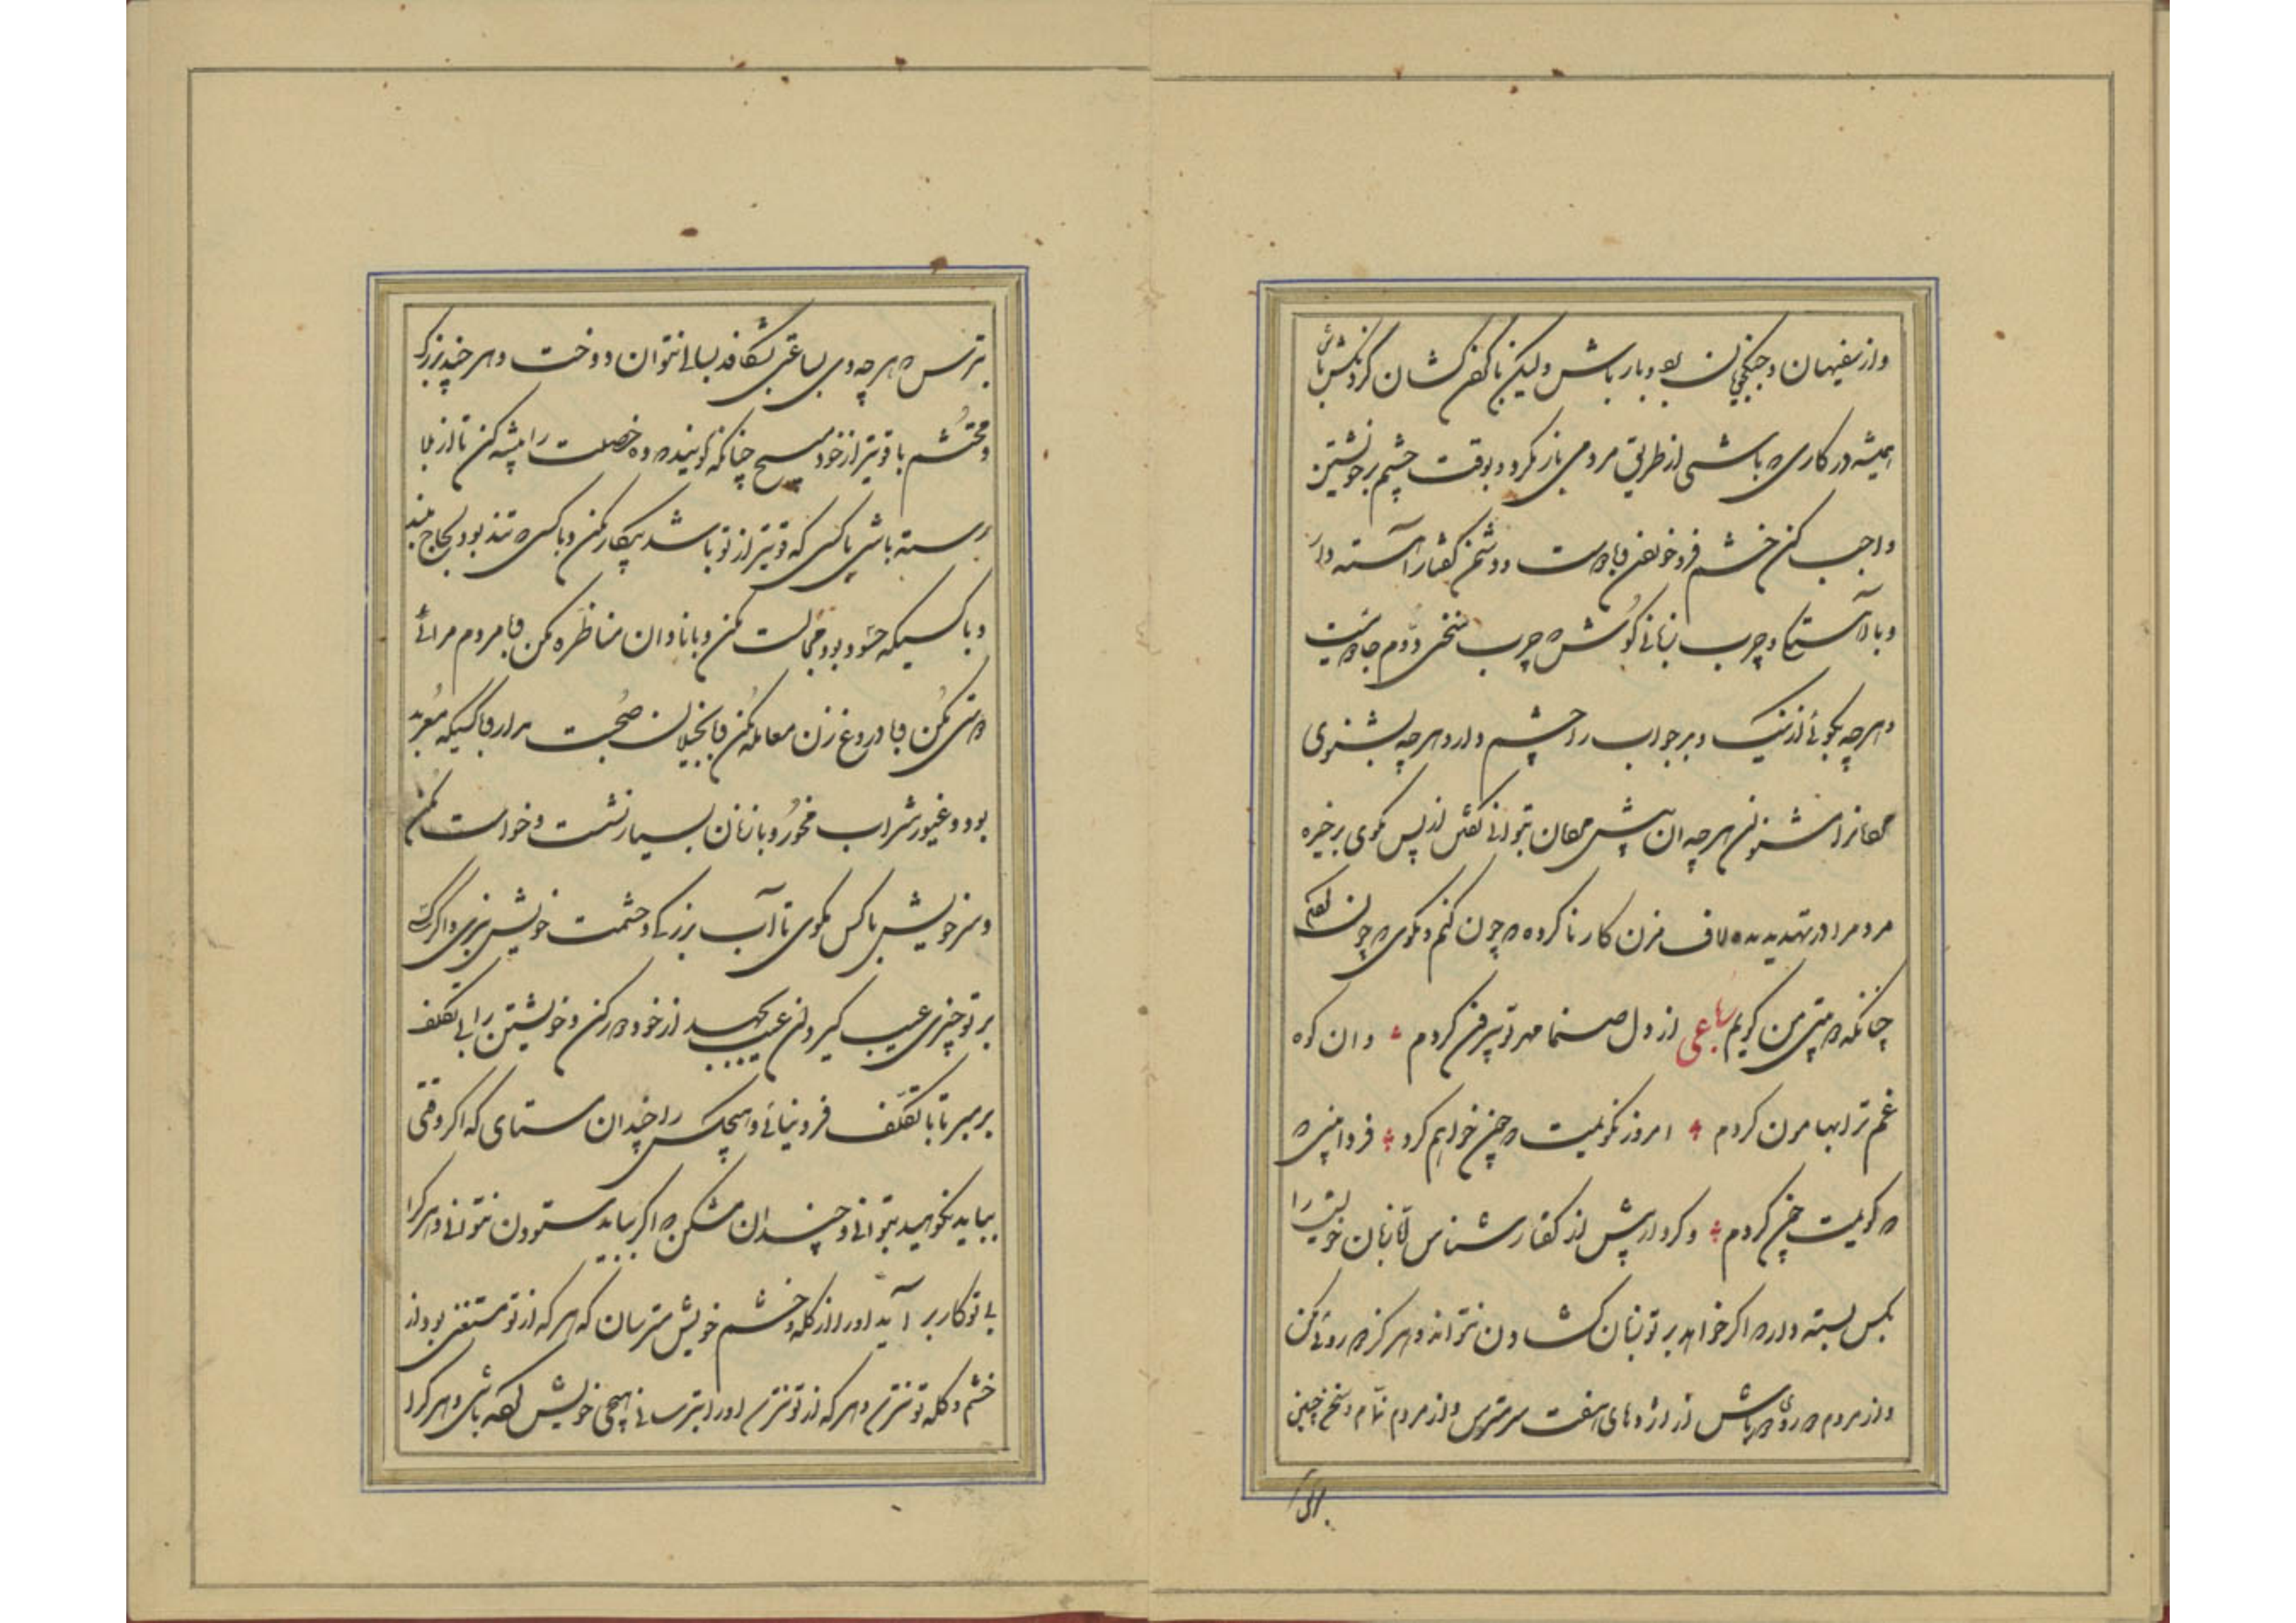 واز سفیهان و جنگجویان بردبار باش ولیکن با گردنکشان گردنکش باش
همیشه در کاری که باشی از طریق مردمی باز مگرد و بوقت خشم بر خویشتن
واجب کن خشم فرو خوردن و با دوست و دشمن گفتار آهسته دار
و با آهستگی و چرب زبانی گوش که چرب سخنی دوم جادوئیست
و هرچه بگوئی از نیک و بد جواب را چشم دار و هرچه بشنوی
مردمرا در تهدید مده لاف مزن کار ناکرده که چون کنم و مگوی که چون کنم
چنانکه من گویم رباعی از دل صنما مهر تو بیرون کردم وان کوه
غم ترا بهامون کردم امروز نگویمت که چون خواهم کرد فردا بینی که
که گویمت چون کردم و کردار پیش از گفتار شناس تا زبان خویش را
بکس بسته دار که اگر خواهد بر تو زبان گشادن نتواند و هرگز دوروئی مکن
واز مردم دوروی دور باش از اژدهای هفت سر مترس و از مردم نمام و سخن چین
بترس که هرچه وی بساعتی بشکافد بسالی نتوان دوخت و هر چند بزرگ
و محتشم با قویتر از خود مسیح چنانکه گویند ده خصلت را پیشه کن تا از بلا
رسته باشی با کسی که قویتر از تو باشد پیکار مکن و با کسی که تند بود لجاج مبند
و با کسیکه حسود بود مجالست مکن و با نادان مناظره مکن و با مردم مرائی
دوستی مکن و با دروغ زن معامله مکن و با بخیلان صحبت مدار و با کسیکه معربد
بود و غیور شراب مخور و با زنان بسیار نشست و خواست مکن
و سر خویش با کس مگوی تا آب بزرگی و حشمت خویش نبری و اگر کسی
بر تو چیزی عیب گیرد آن عیب بجهد از خود دور کن و خویشتن را بی تکلف
برمبر تا با تکلف فرو نیائی و هیچکس را چندان ستای که اگر وقتی
بباید نکوهید بتوانی و چندان مشکن که اگر بباید ستودن نتوانی و هر کرا
بی تو کار بر آید او را از گله و خشم خویش مترسان که هر که از تو مستغنی بود از
خشم و گله تو نترسد و هر که از تو نترسد او را بترسانی هجی خویش کرده باشی و هر کرا